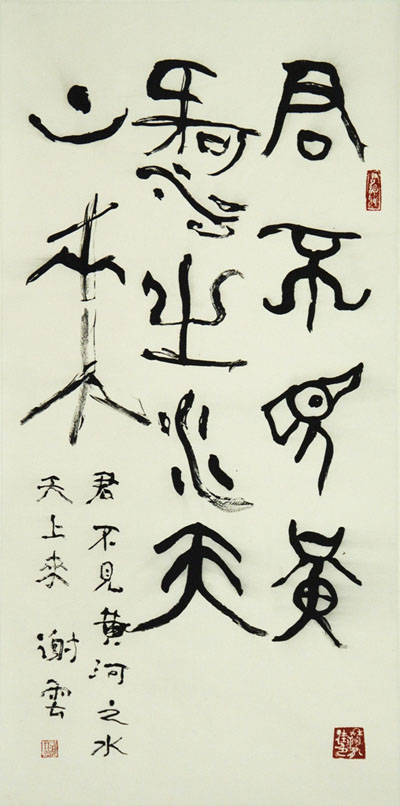 君不見黃
河之水天
上來
君不見黄河之水
天上来
謝雲